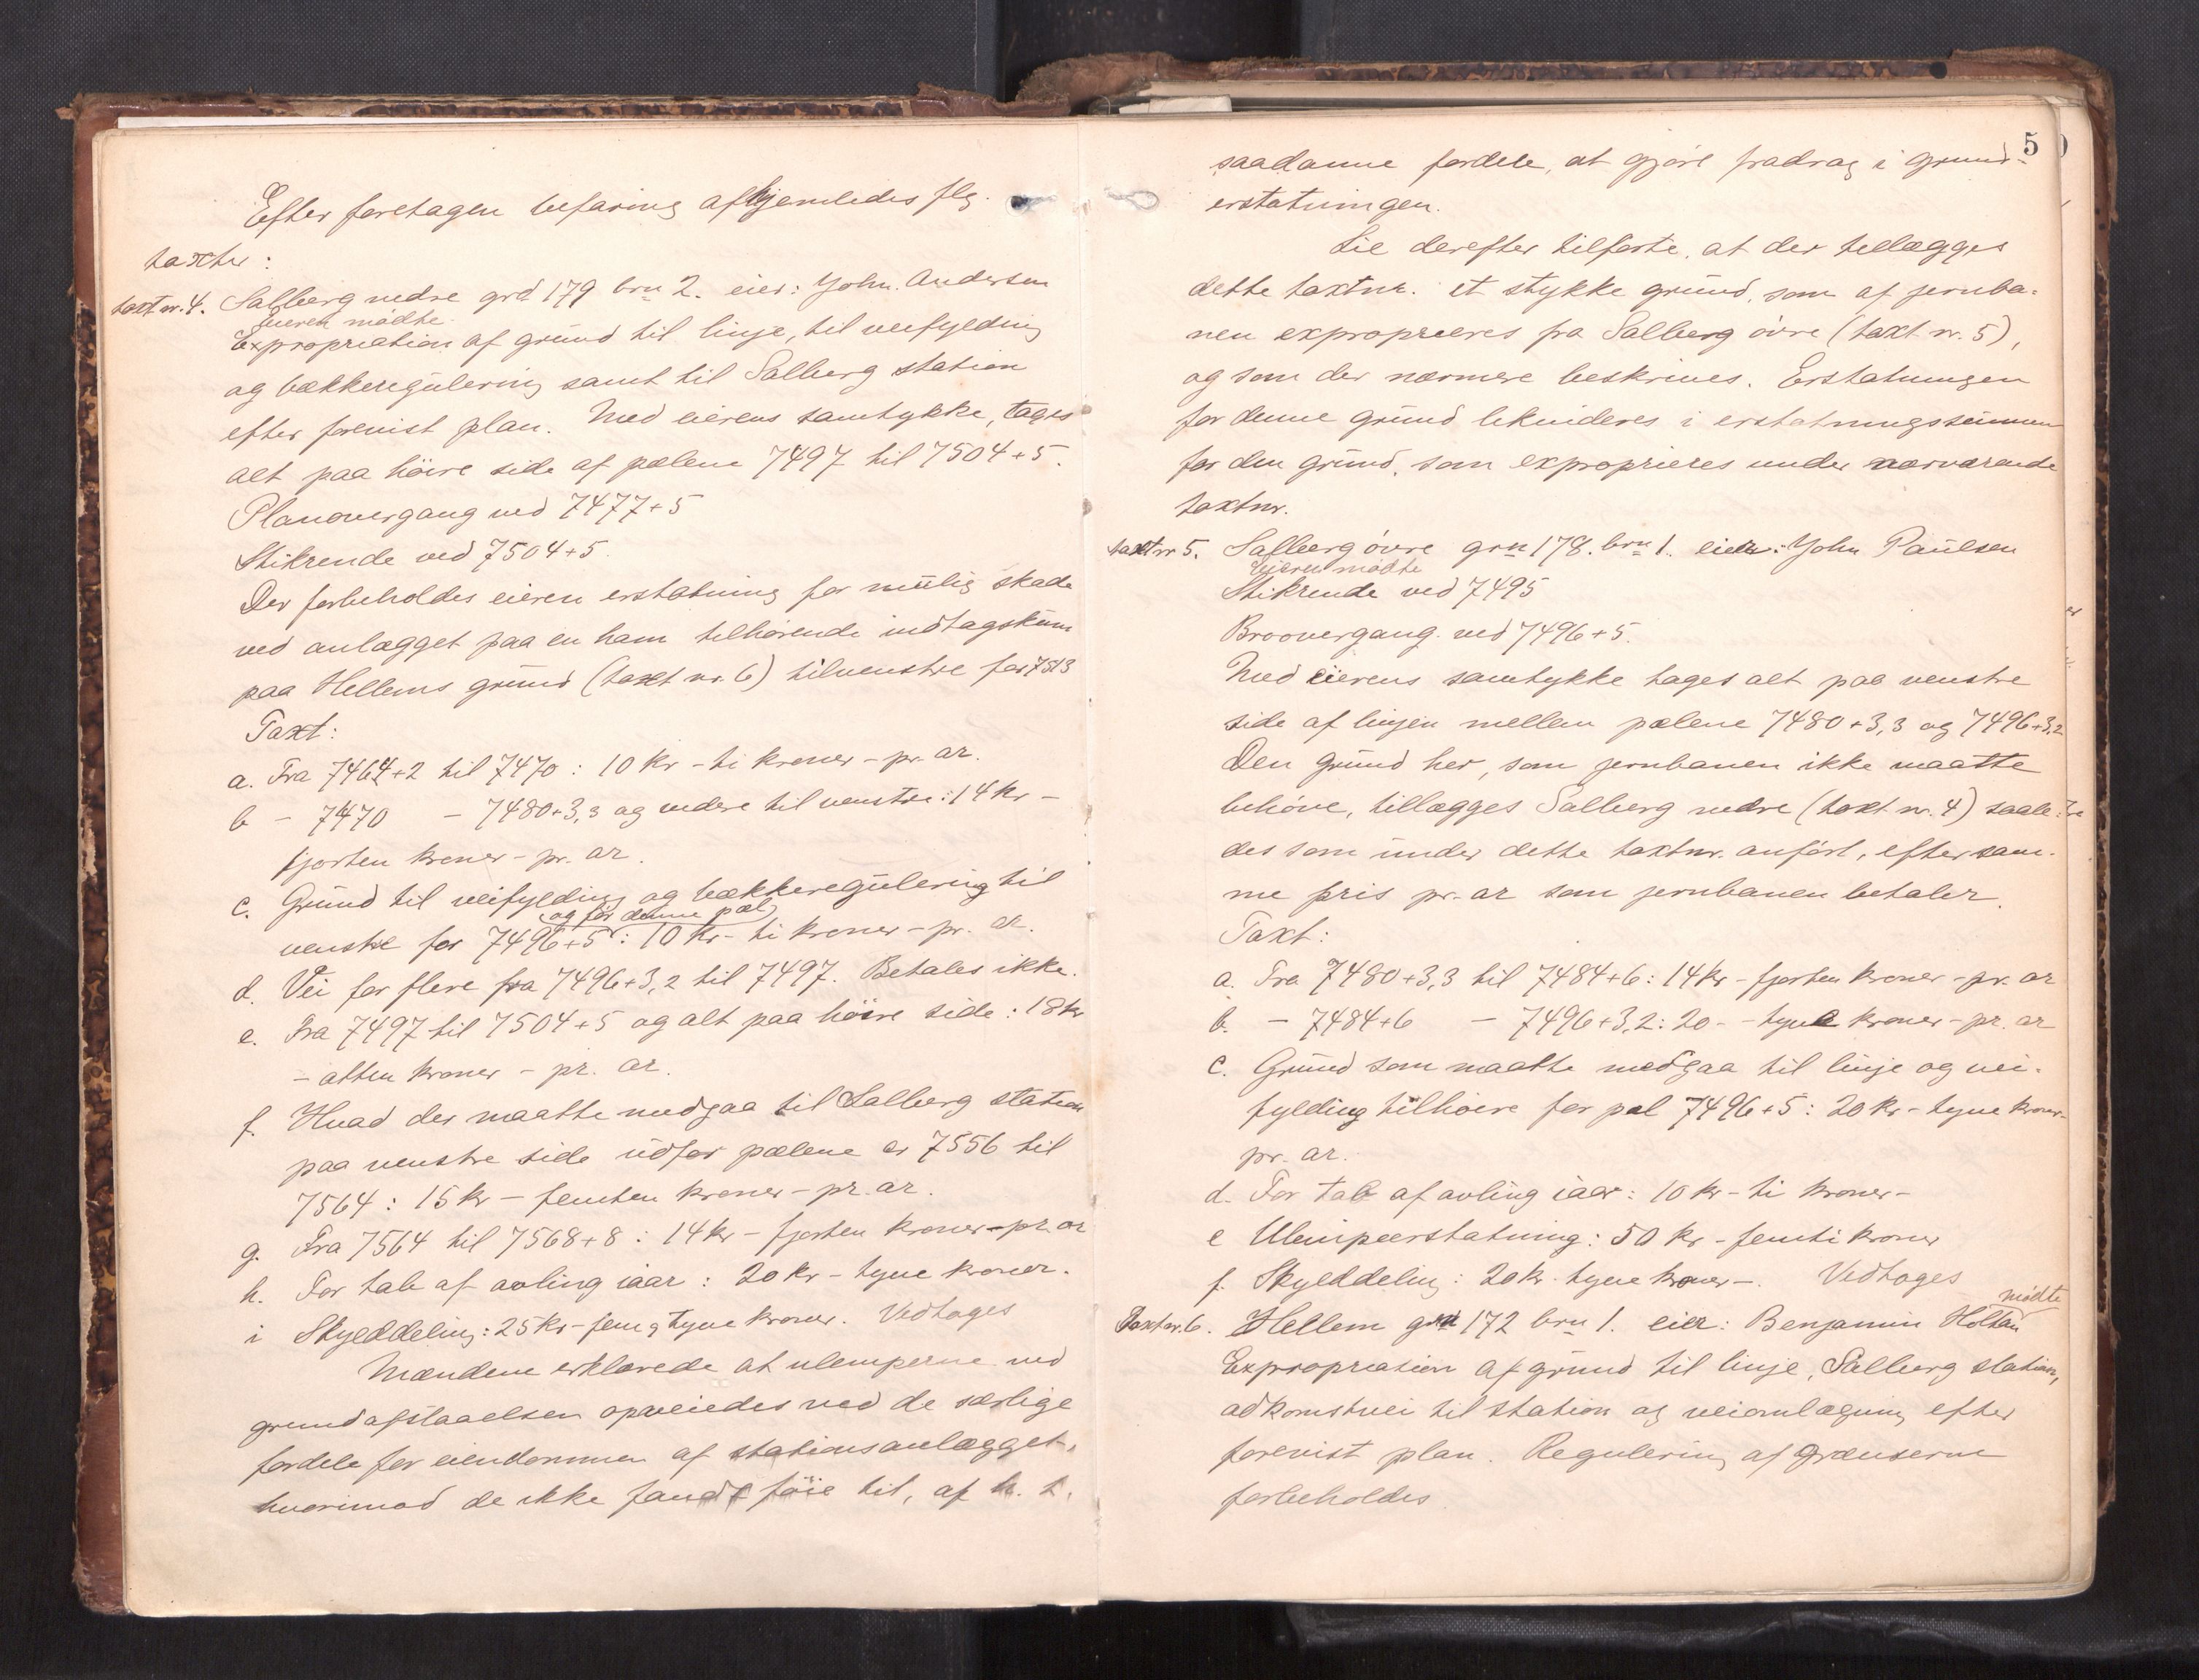 Efter foretagen befaring afhjemledes flg.
taxter:
taxt nr. 4. Salberg nedre grd 179 brn 2. eier: John. Andersen
Eieren mødte.
Expropriation af grund til linje, til veifylding
og bækkeregulering samt til Salberg station
efter forevist plan. Med eierens samtykke, tages
alt paa høire side af pælene 7497 til 7504+5.
Planovergang ved 7477+5
Stikrende ved 7504+5.
Der forbeholdes eieren erstatning for mulig skade
ved anlægget paa en ham tilhørende indtagskum
paa Hellems grund (taxt nr. 6) tilvenstre for 7513
Taxt:
a. Fra 7464+2 til 7470: 10 kr - ti kroner - pr. ar.
b - 7470 - 7480+3,3 og videre til venstre: 14 kr -
fjorten kroner - pr. ar.
c. Grund til veifylding og bækkeregulering til
(og før denne pæl)
venstre for 7496+5: 10 kr - ti kroner - pr. ar.
d. Vei for flere fra 7496+3,2 til 7497. Betales ikke.
e. Fra 7497 til 7504+5 og alt paa høire side: 18 kr
- atten kroner - pr. ar.
f. Hvad der maatte medgaa til Salberg station
paa venstre side udfor pælene er 7556 til
7564: 15 kr - femten kroner - pr. ar.
g. Fra 7564 til 7568+8: 14 kr - fjorten kroner - pr. ar
h. For tab af avling iaar: 20 kr - tyve kroner.
i Skylddeling: 25 kr - fem og tyve kroner. Vedtoges
Mændene erklærede at ulemperne ved
grundafstaaelsen opveiedes ved de særlige
fordele for eiendommen af stationsanlægget,
hvorimod de ikke fandt føie til, af h. t.
5
saadanne fordele, at gjøre fradrag i grund-
erstatningen.
Lie derefter tilførte, at der tillægges
dette taxtnr. et stykke grund, som af jernba-
nen exproprieres fra Salberg øvre (taxt nr. 5),
og som der nærmere beskrives. Erstatningen
for denne grund likvideres i erstatningssummen
for den grund, som exproprieres under nærværende
taxtnr.
taxt nr 5. Salberg øvre grn 178. brn 1. eier: John Paulsen
Eieren mødte
Stikrende ved 7495
Broovergang ved 7496+5.
Med eierens samtykke tages alt paa venstre
side af linjen mellem pælene 7480+3,3 og 7496+3,2
Den grund her, som jernbanen ikke maatte
behøve, tillægges Salberg nedre (taxt nr. 4) saale-
des som under dette taxtnr. anført, efter sam-
me pris pr. ar som jernbanen betaler.
Taxt:
a. Fra 7480+3,3 til 7484+6: 14 kr - fjorten kroner - pr. ar
b. - 7484+6 - 7496+3,2: 20 - - tyve kroner - pr. ar
c. Grund som maatte medgaa til linje og vei-
fylding tilhøire for pæl 7496+5: 20 kr - tyve kroner -
pr. ar.
d. For tab af avling iaar: 10 kr - ti kroner -
e Ulempeerstatning: 50 kr - femti kroner
f. Skylddeling: 20 kr. tyve kroner -. Vedtoges
mødte
Taxt nr. 6. Hellem grd 172 brn 1. eier: Benjamin Holtan
Expropriation af grund til linje, Salberg station,
adkomstvei til station og veiomlægning efter
forevist plan. Regulering af grænserne
forbeholdes.